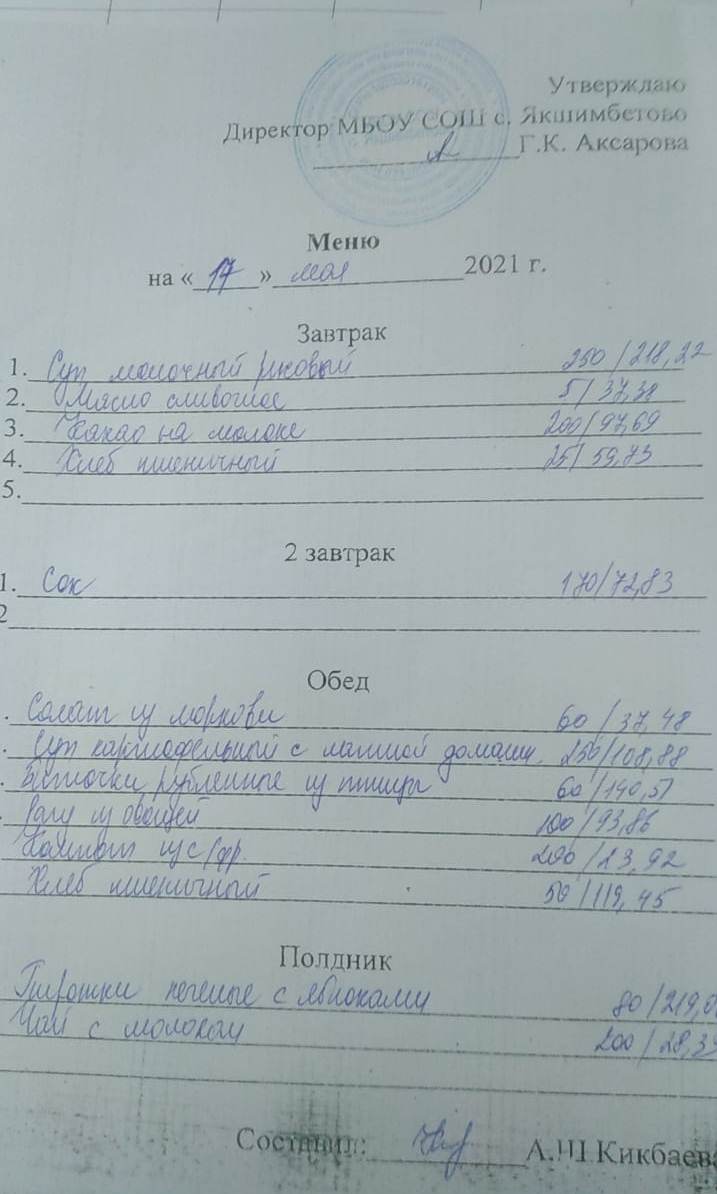 Утверждаю
Директор МБОУ СОШ с. Якшимбетово
Г.К. Аксарова
Меню
на «17» мая 2021 г.
Завтрак
1. Суп молочный рисовый 250/218,22
2. Масло сливочное 5/37,38
3. Какао на молоке 200/97,69
4. Хлеб пшеничный 25/59,73
5.
2 завтрак
1. Сок 170/72,83
2
Обед
. Салат из моркови 60/37,48
. Суп картофельный с лапшой домашн. 250/108,88
. Биточки рубленные из птицы 60/140,51
. Рагу из овощей 100/93,86
Компот из с/фр. 200/23,92
Хлеб пшеничный 50/119,45
Полдник
Пирожки печеные с яблоками 80/219,0
Чай с молоком 200/28,33
Составил: А.Ш.Кикбаева